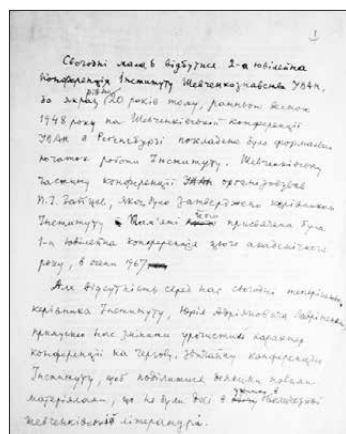 1
Сьогодні мала б відбутися 2-а ювілейна
конференція Інституту Шевченкознавства УВАН,
бо якраз рівно 20 років тому, ранньою весною
1948 року на Шевченківській конференції
УВАН в Регенсбурзі покладено було формально
початок роботи Інституту. Шевченківську
частину конференції організовував
П. Зайцев, якого було затверджено керівником
Інституту. Пам'яті присвячена була
1-а ювілейна конференція цього академічного
року, в осени 1967
Але відсутність серед нас сьогодні теперішнього
керівника Інституту, Юрія Лавріненка,
примушує нас змінити урочистий характер
конференції на чергову, звичайну конференцію
Інституту, щоб поділитися деякими новими
матеріалами, що не були досі в
шевченківській літературі.